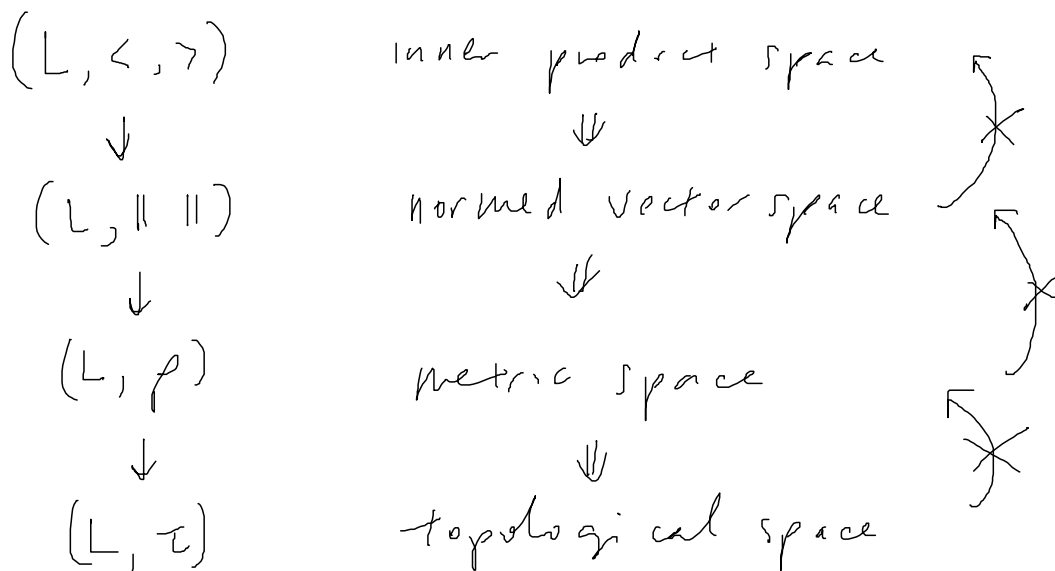 (L, < , >) inner product space
↓ ⇓
(L, || ||) normed vector space
↓ ⇓
(L, ρ) metric space
↓ ⇓
(L, τ) topological space